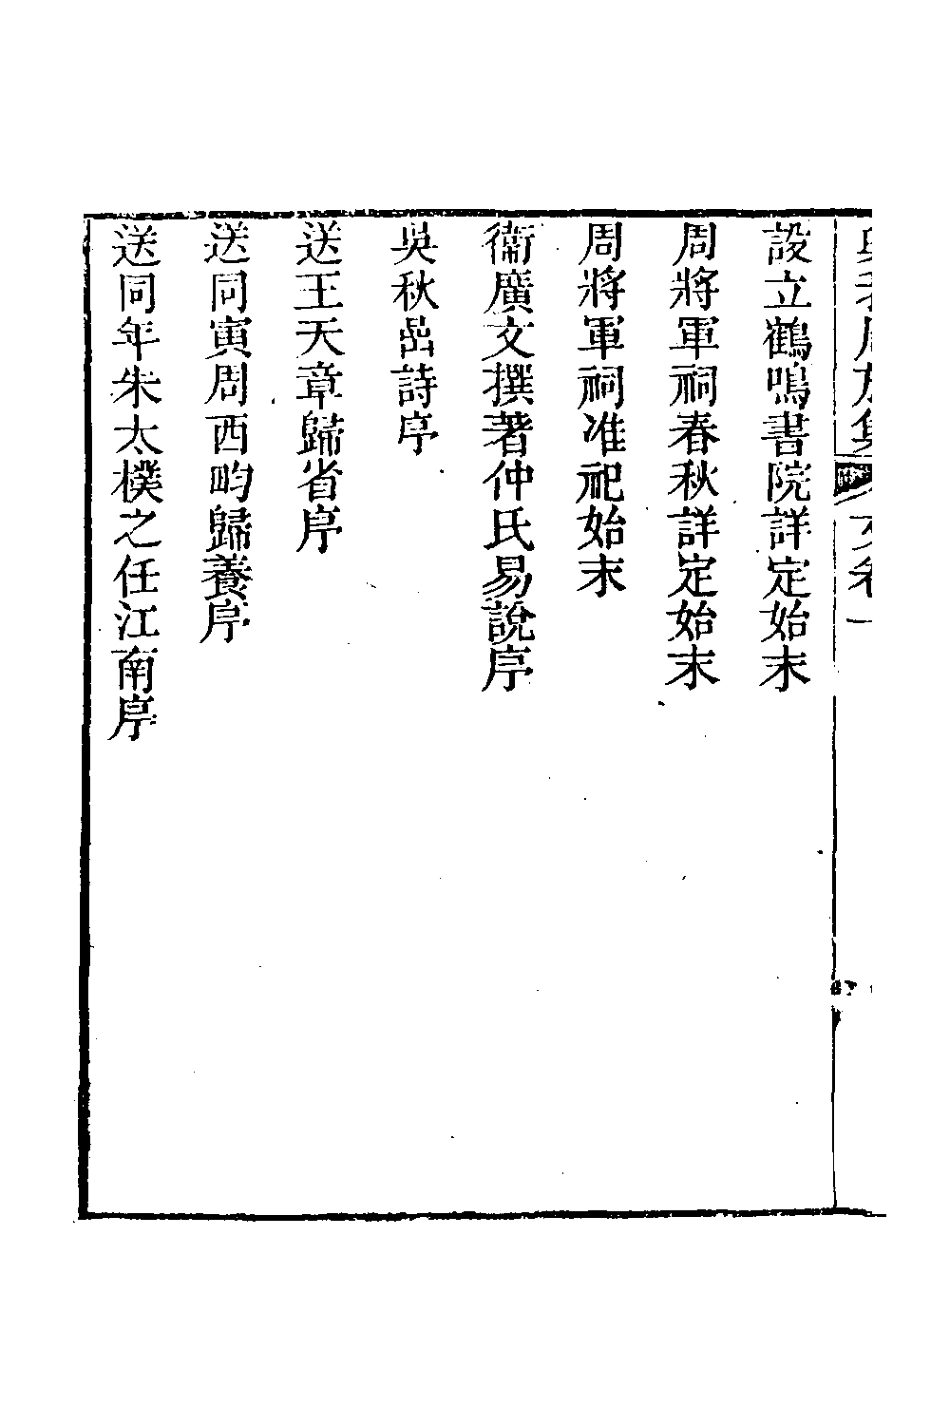 設立鶴鳴書院詳定始末
周將軍祠春秋詳定始末
周將軍祠准祀始末
衞廣文撰著仲氏易說序
吳秋嵒詩序
送王天章歸省序
送同寅周西畇歸養序
送同年朱太樸之任江南序